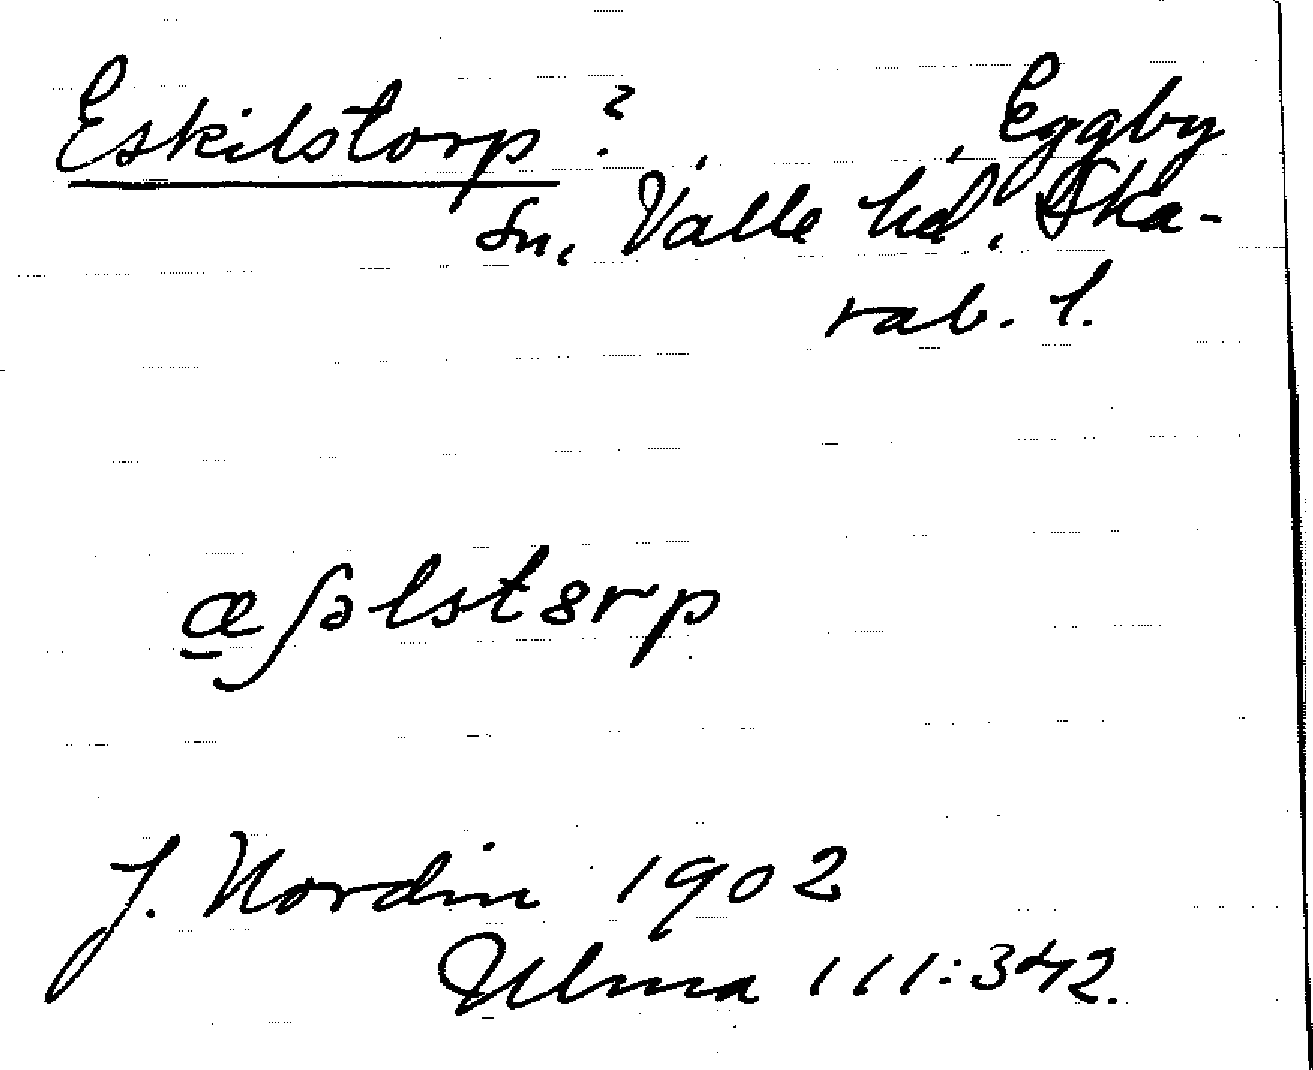 Eskilstorp? Eggby
Sn, Valle hd, Ska-
rab. l.
æʃəlstɜrp
J. Nordin 1902
Ulma 111:342.